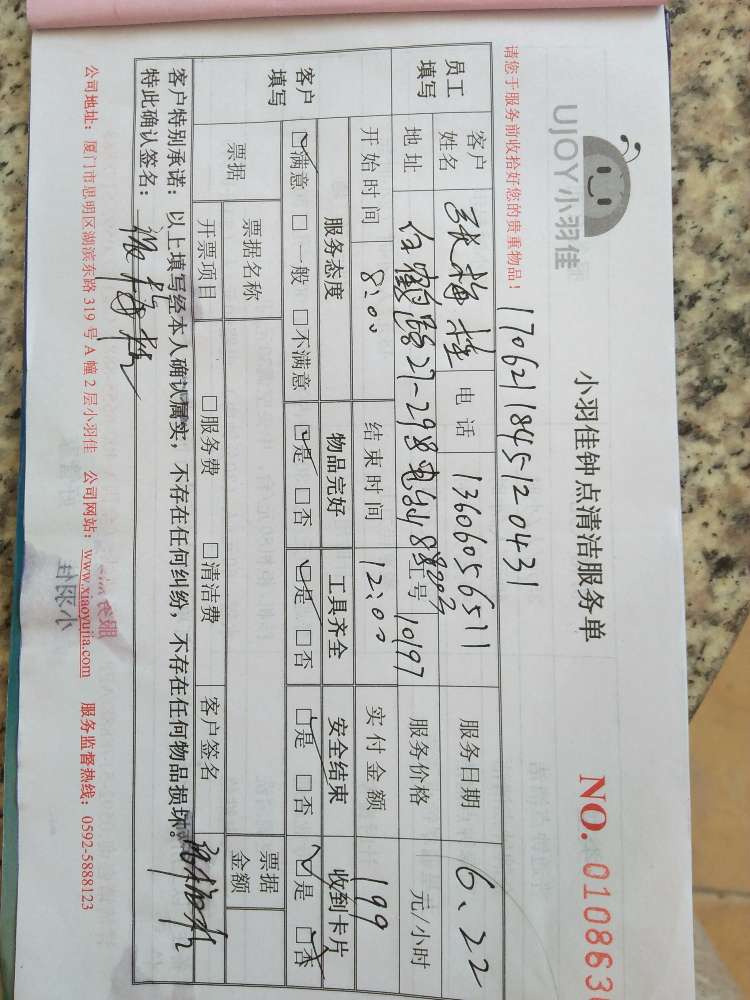 UJOY小羽佳
小羽佳钟点清洁服务单
NO. 010863
请您于服务前收拾好您的贵重物品！
1706211845120431
员工填写 客户姓名 张梅桂 电话 13606056511 服务日期 6.22
地址 白鹭洲27-29 工号 10197 服务价格 元/小时
客户填写 开始时间 8:00 结束时间 12:00 实付金额 199
服务态度 物品完好 工具齐全 安全结束 收到卡片
☑满意 □一般 □不满意 ☑是 □否 ☑是 □否 ☑是 □否 ☑是 ☑否
票据 票据名称 票据金额
开票项目 □服务费 □清洁费 客户签名
客户特别承诺：以上填写经本人确认属实，不存在任何纠纷，不存在任何物品损坏。
特此确认签名： 张梅桂
公司地址：厦门市思明区湖滨东路 319 号 A 幢 2 层小羽佳 公司网站：www.xiaoyujia.com 服务监督热线：0592-5888123